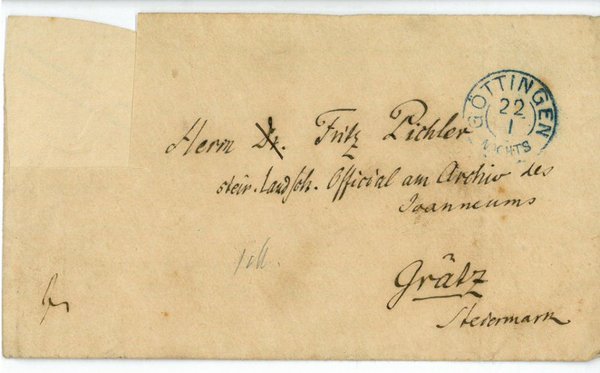 GÖTTINGEN
22
1
NICHTS
Herrn Dr. Fritz Pichler
steir. Landsch. Official am Archiv des
Joanneums
Grätz
Steiermark